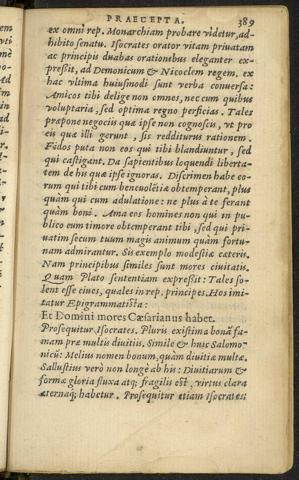 PRAECEPTA. 389
ex omni rep. Monarchiam probare videtur, ad-
hibito senatu. Isocrates orator vitam priuatam
ac principis duabus orationibus eleganter ex-
preßit, ad Demonicum & Nicoclem regem. ex
hac vltima huiusmodi sunt verba conuersa:
Amicos tibi delige non omnes, nec cum quibus
voluptaria, sed optima regno perficias. Tales
prapone negociis quæ ipse non cognoscis, vt pro
eis quæ illi gerunt, sis redditurus rationem.
Fidos puta non eos qui tibi blandiuntur, sed
qui castigant. Da sapientibus loquendi liberta-
tem de his quæ ipse ignoras. Discrimen habe eo-
rum qui tibi cum beneuolẽtia obtemperant, plus
quàm qui cum adulatione: ne plus à te ferant
quàm boni. Ama eos homines non qui in pu-
blico cum timore obtemperant tibi, sed qui pri-
uatim secum tuum magis animum quàm fortu-
nam admirantur. Sis exemplo modestiæ cæteris.
Nam principibus similes sunt mores ciuitatis.
Quam Plato sententiam expreßit: Tales so-
lent esse ciues, quales in rep. principes. Hos imi-
tatur Epigrammatista:
Et Domini mores Cæsarianus habet.
Prosequitur Isocrates. Pluris existima bonã fa-
mam præ multis diuitiis. Simile & huic Salomo-
nicũ: Melius nomen bonum, quàm diuitiæ multæ.
Sallustius verò non longè ab his: Diuitiarum &
formæ gloria fluxa atq; fragilis est, virtus clara
æternaq; habetur. Prosequitur etiam Isocrates: